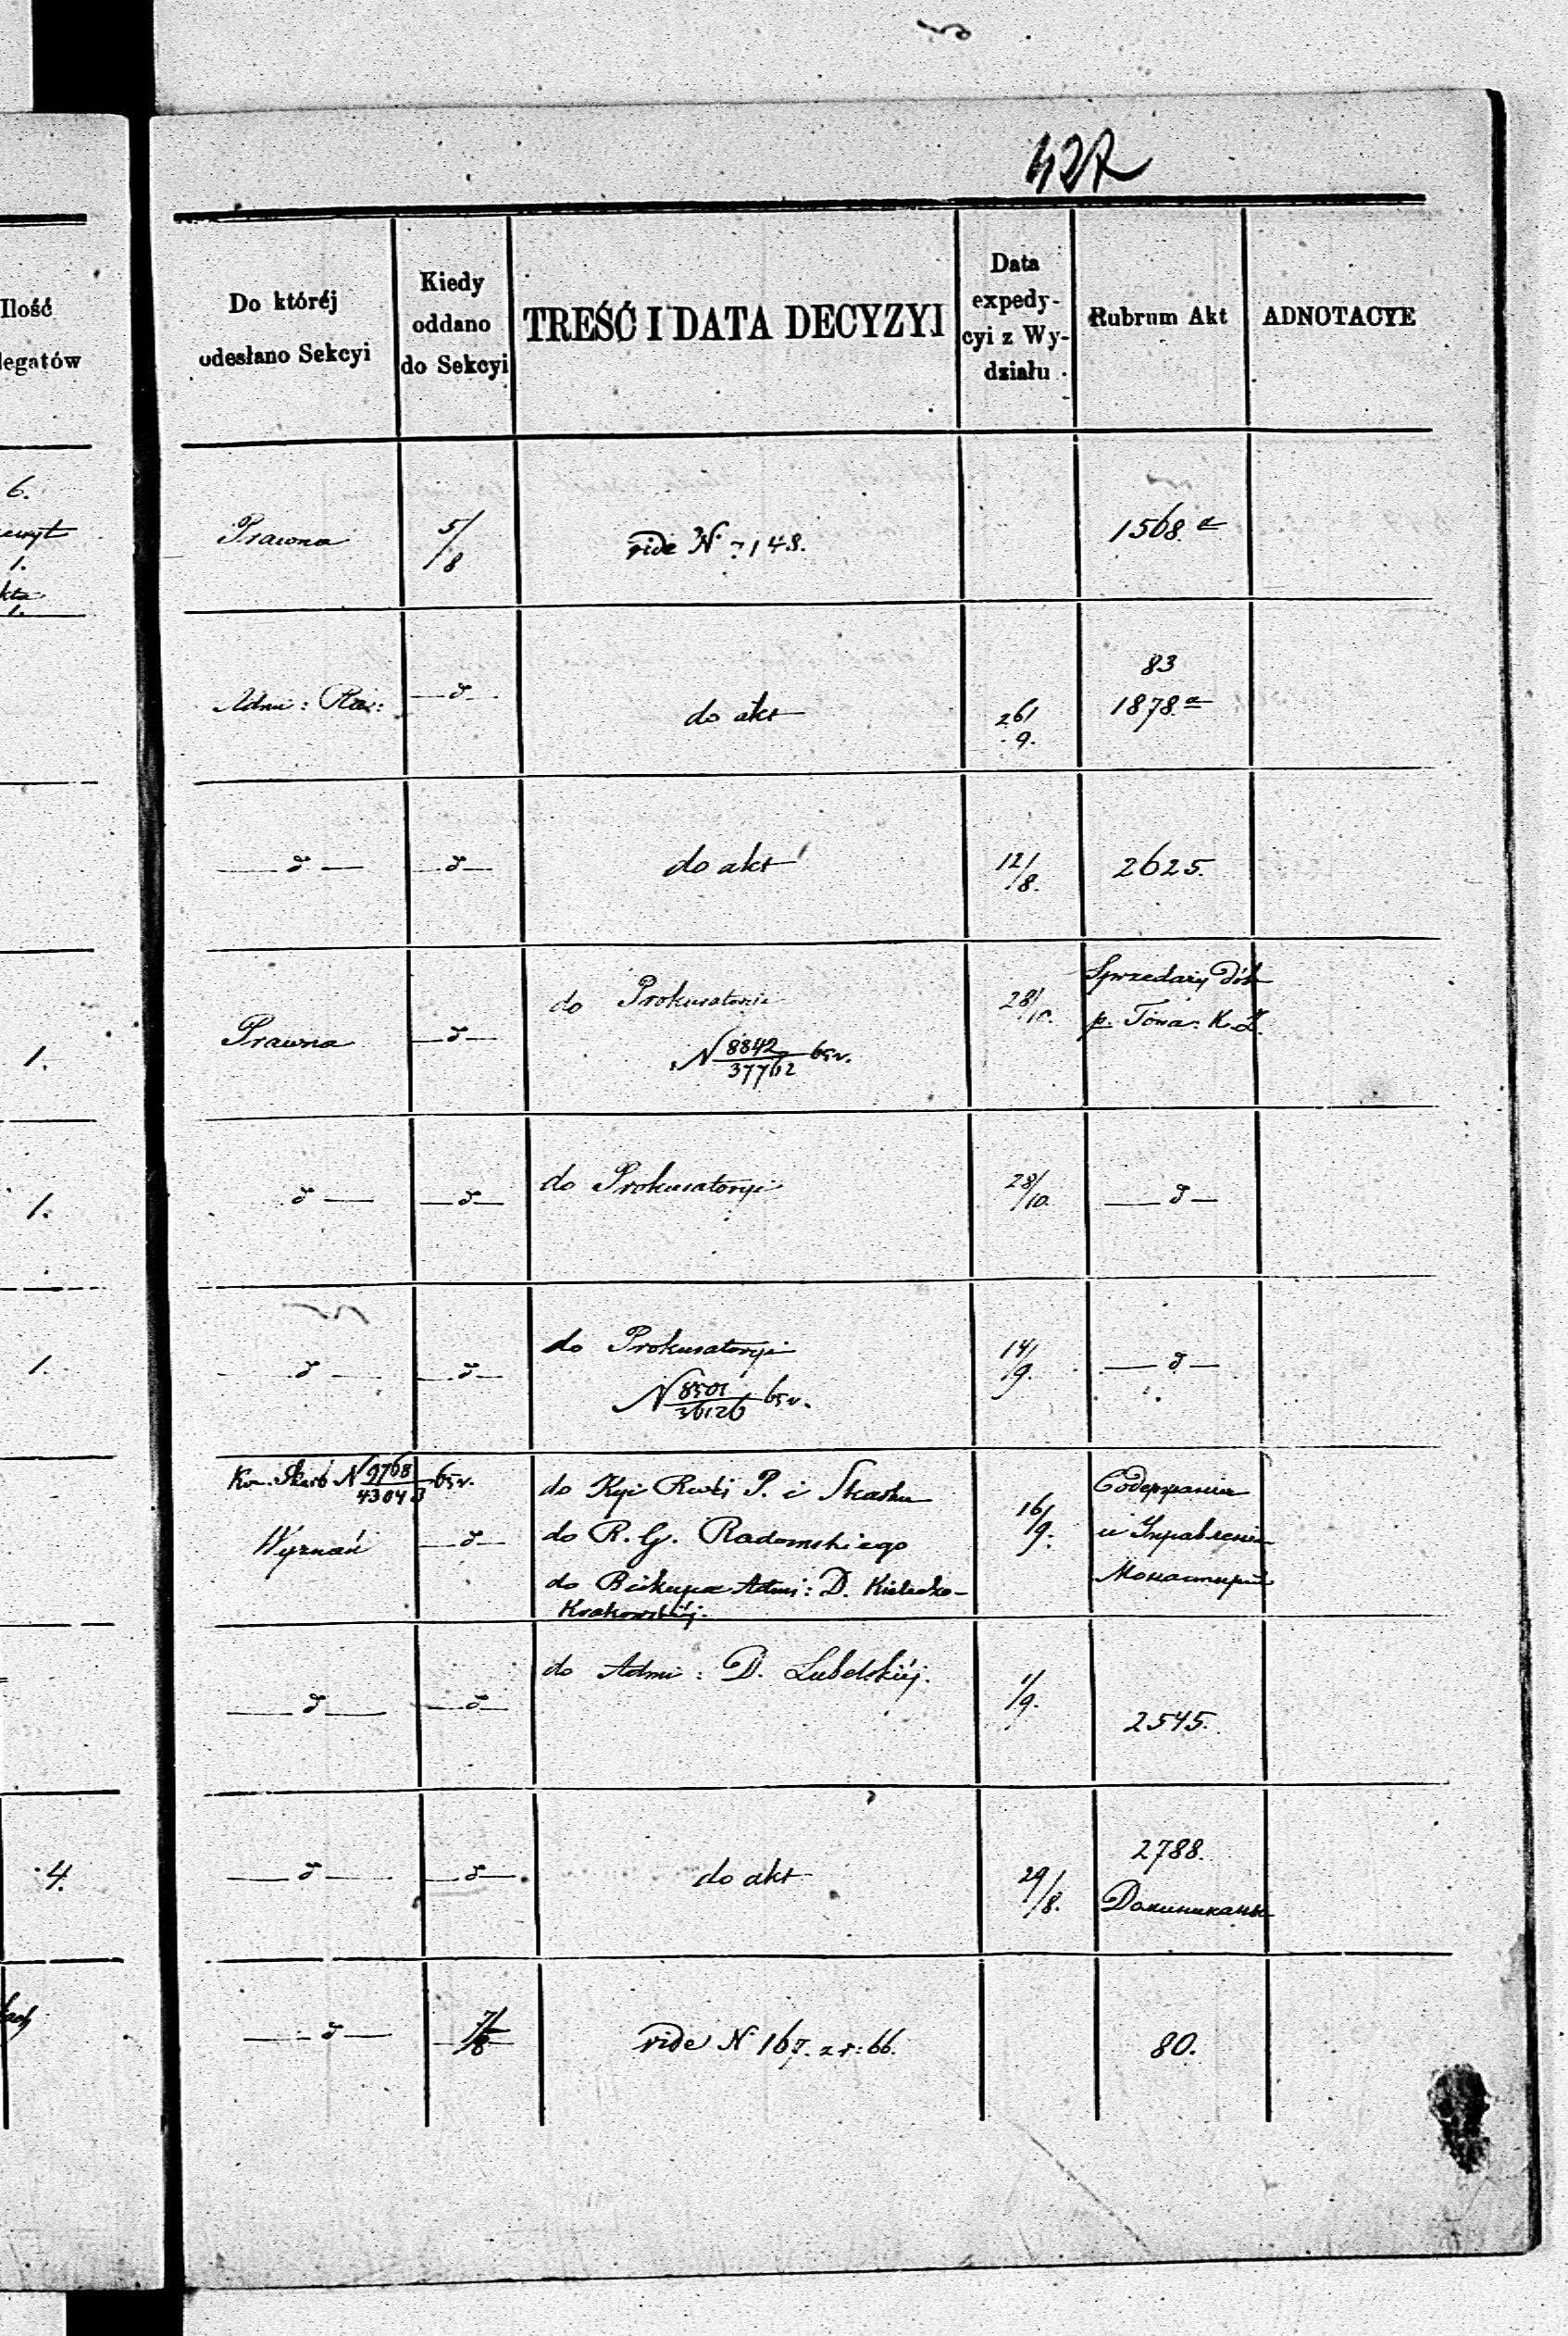 427
Ilość
legatów
Do któréj
odesłano Sekcyi
Kiedy
oddano
do Sekcyi
TREŚĆ I DATA DECYZYI
Data
expedy-
cyi z Wy-
działu
Rubrum Akt
ADNOTACYE
6.
1.
1.
Prawna
5/8
vide N 7148.
1568 a
Admi:
d
do akt
26/9.
83
1878 a
d
d
do akt
12/8.
2625.
1.
Prawna
d
do Prokuratorii
N 8842/37762 65 r.
28/10.
Sprzedaży Dób
p. Towa: K. Z.
1.
d
d
do Prokuratoryi
28/10.
d
1.
d
d
do Prokuratoryi
N 8501/36126 65 r.
14/9.
d
Km. Skarb N 9768/43043 65 r.
Wyznań
d
do Kyi Rząd. P. i Skarbu
do R. G. Radomskiego
do Biskupa Admi: D. Kielecko-
Krakowskiéj.
16/9.
Содержание
и Управление
Монастырей
d
d
do Admi: D. Lubelskiéj.
1/9.
2545.
4.
d
d
do akt
29/8.
2788.
Доминиканы
d
7/8
vide N 167. z r: 66.
80.